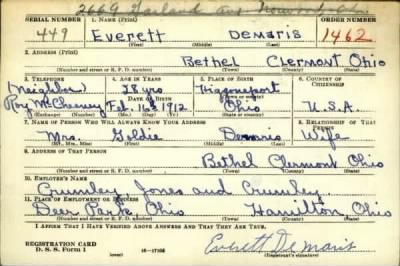 2669 Garland Ave Norwood, Ohio
SERIAL NUMBER 1. NAME (Print) ORDER NUMBER
449 Everett Demaris 1462
(First) (Middle) (Last)
2. ADDRESS (Print)
Bethel Clermont Ohio
(Number and street or R. F. D. number) (Town) (County) (State)
3. TELEPHONE 4. AGE IN YEARS 5. PLACE OF BIRTH 6. COUNTRY OF CITIZENSHIP
(Neighbor) 28 yrs Higginsport
DATE OF BIRTH (Town or county)
Feb. 16 1912 Ohio U.S.A.
(Exchange) (Number) (Mo.) (Day) (Yr.) (State or country)
7. NAME OF PERSON WHO WILL ALWAYS KNOW YOUR ADDRESS 8. RELATIONSHIP OF THAT PERSON
Mrs. Goldie Demaris Wife
(Mr., Mrs., Miss) (First) (Middle) (Last)
9. ADDRESS OF THAT PERSON
Bethel Clermont Ohio
(Number and street or R. F. D. number) (Town) (County) (State)
10. EMPLOYER'S NAME
Crumley Jones and Crumley
11. PLACE OF EMPLOYMENT OR BUSINESS
Deer Park, Ohio Hamilton, Ohio
(Number and street or R. F. D. number) (Town) (County) (State)
I AFFIRM THAT I HAVE VERIFIED ABOVE ANSWERS AND THAT THEY ARE TRUE.
REGISTRATION CARD
D. S. S. Form 1 16—17105 Everett Demaris
(Registrant's signature)